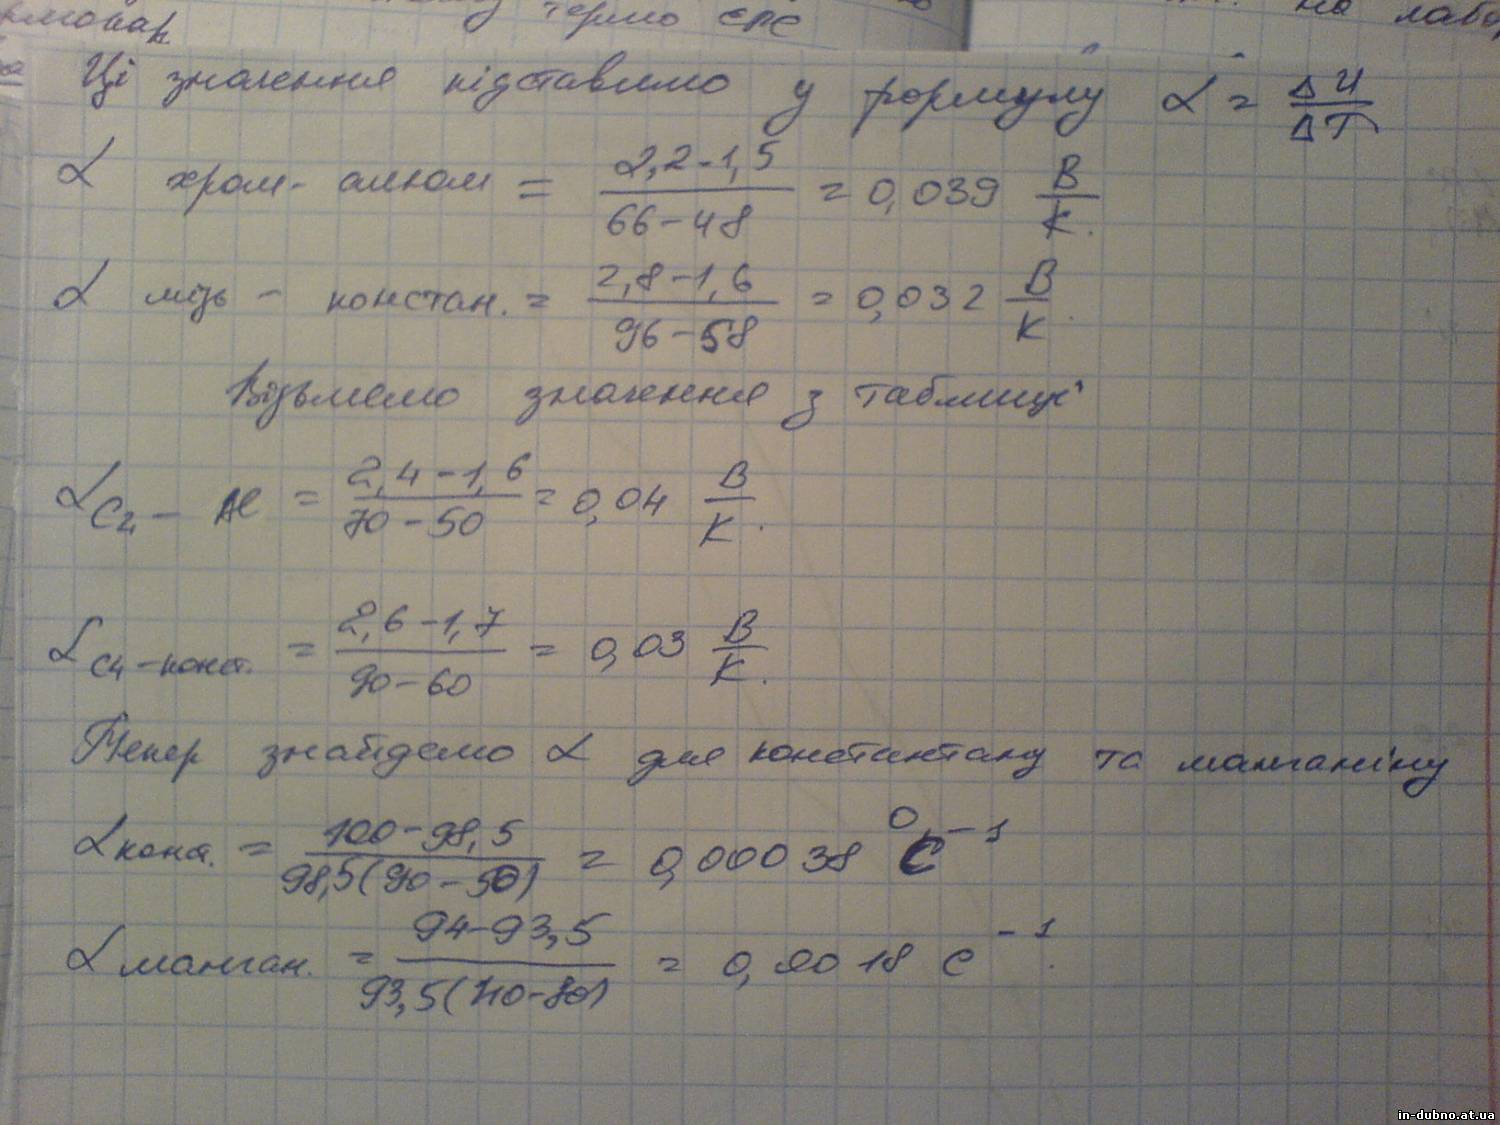 термо єрс
на лабо
Ці значення підставимо у формулу α = ΔU/ΔT
α хром-алюм = (2,2-1,5)/(66-48) = 0,039 В/К.
α мідь - констан. = (2,8-1,6)/(96-58) = 0,032 В/К.
Візьмемо значення з таблиці
α Cч - Al = (2,4-1,6)/(70-50) = 0,04 В/К.
α Cч-конст. = (2,6-1,7)/(90-60) = 0,03 В/К.
Тепер знайдемо α для константану та манганіну
α конст. = (100-98,5)/(98,5(90-50)) = 0,00038 °C⁻¹
α манган. = (94-93,5)/(93,5( -80)) = 0,0018 C⁻¹.
in-dubno.at.ua